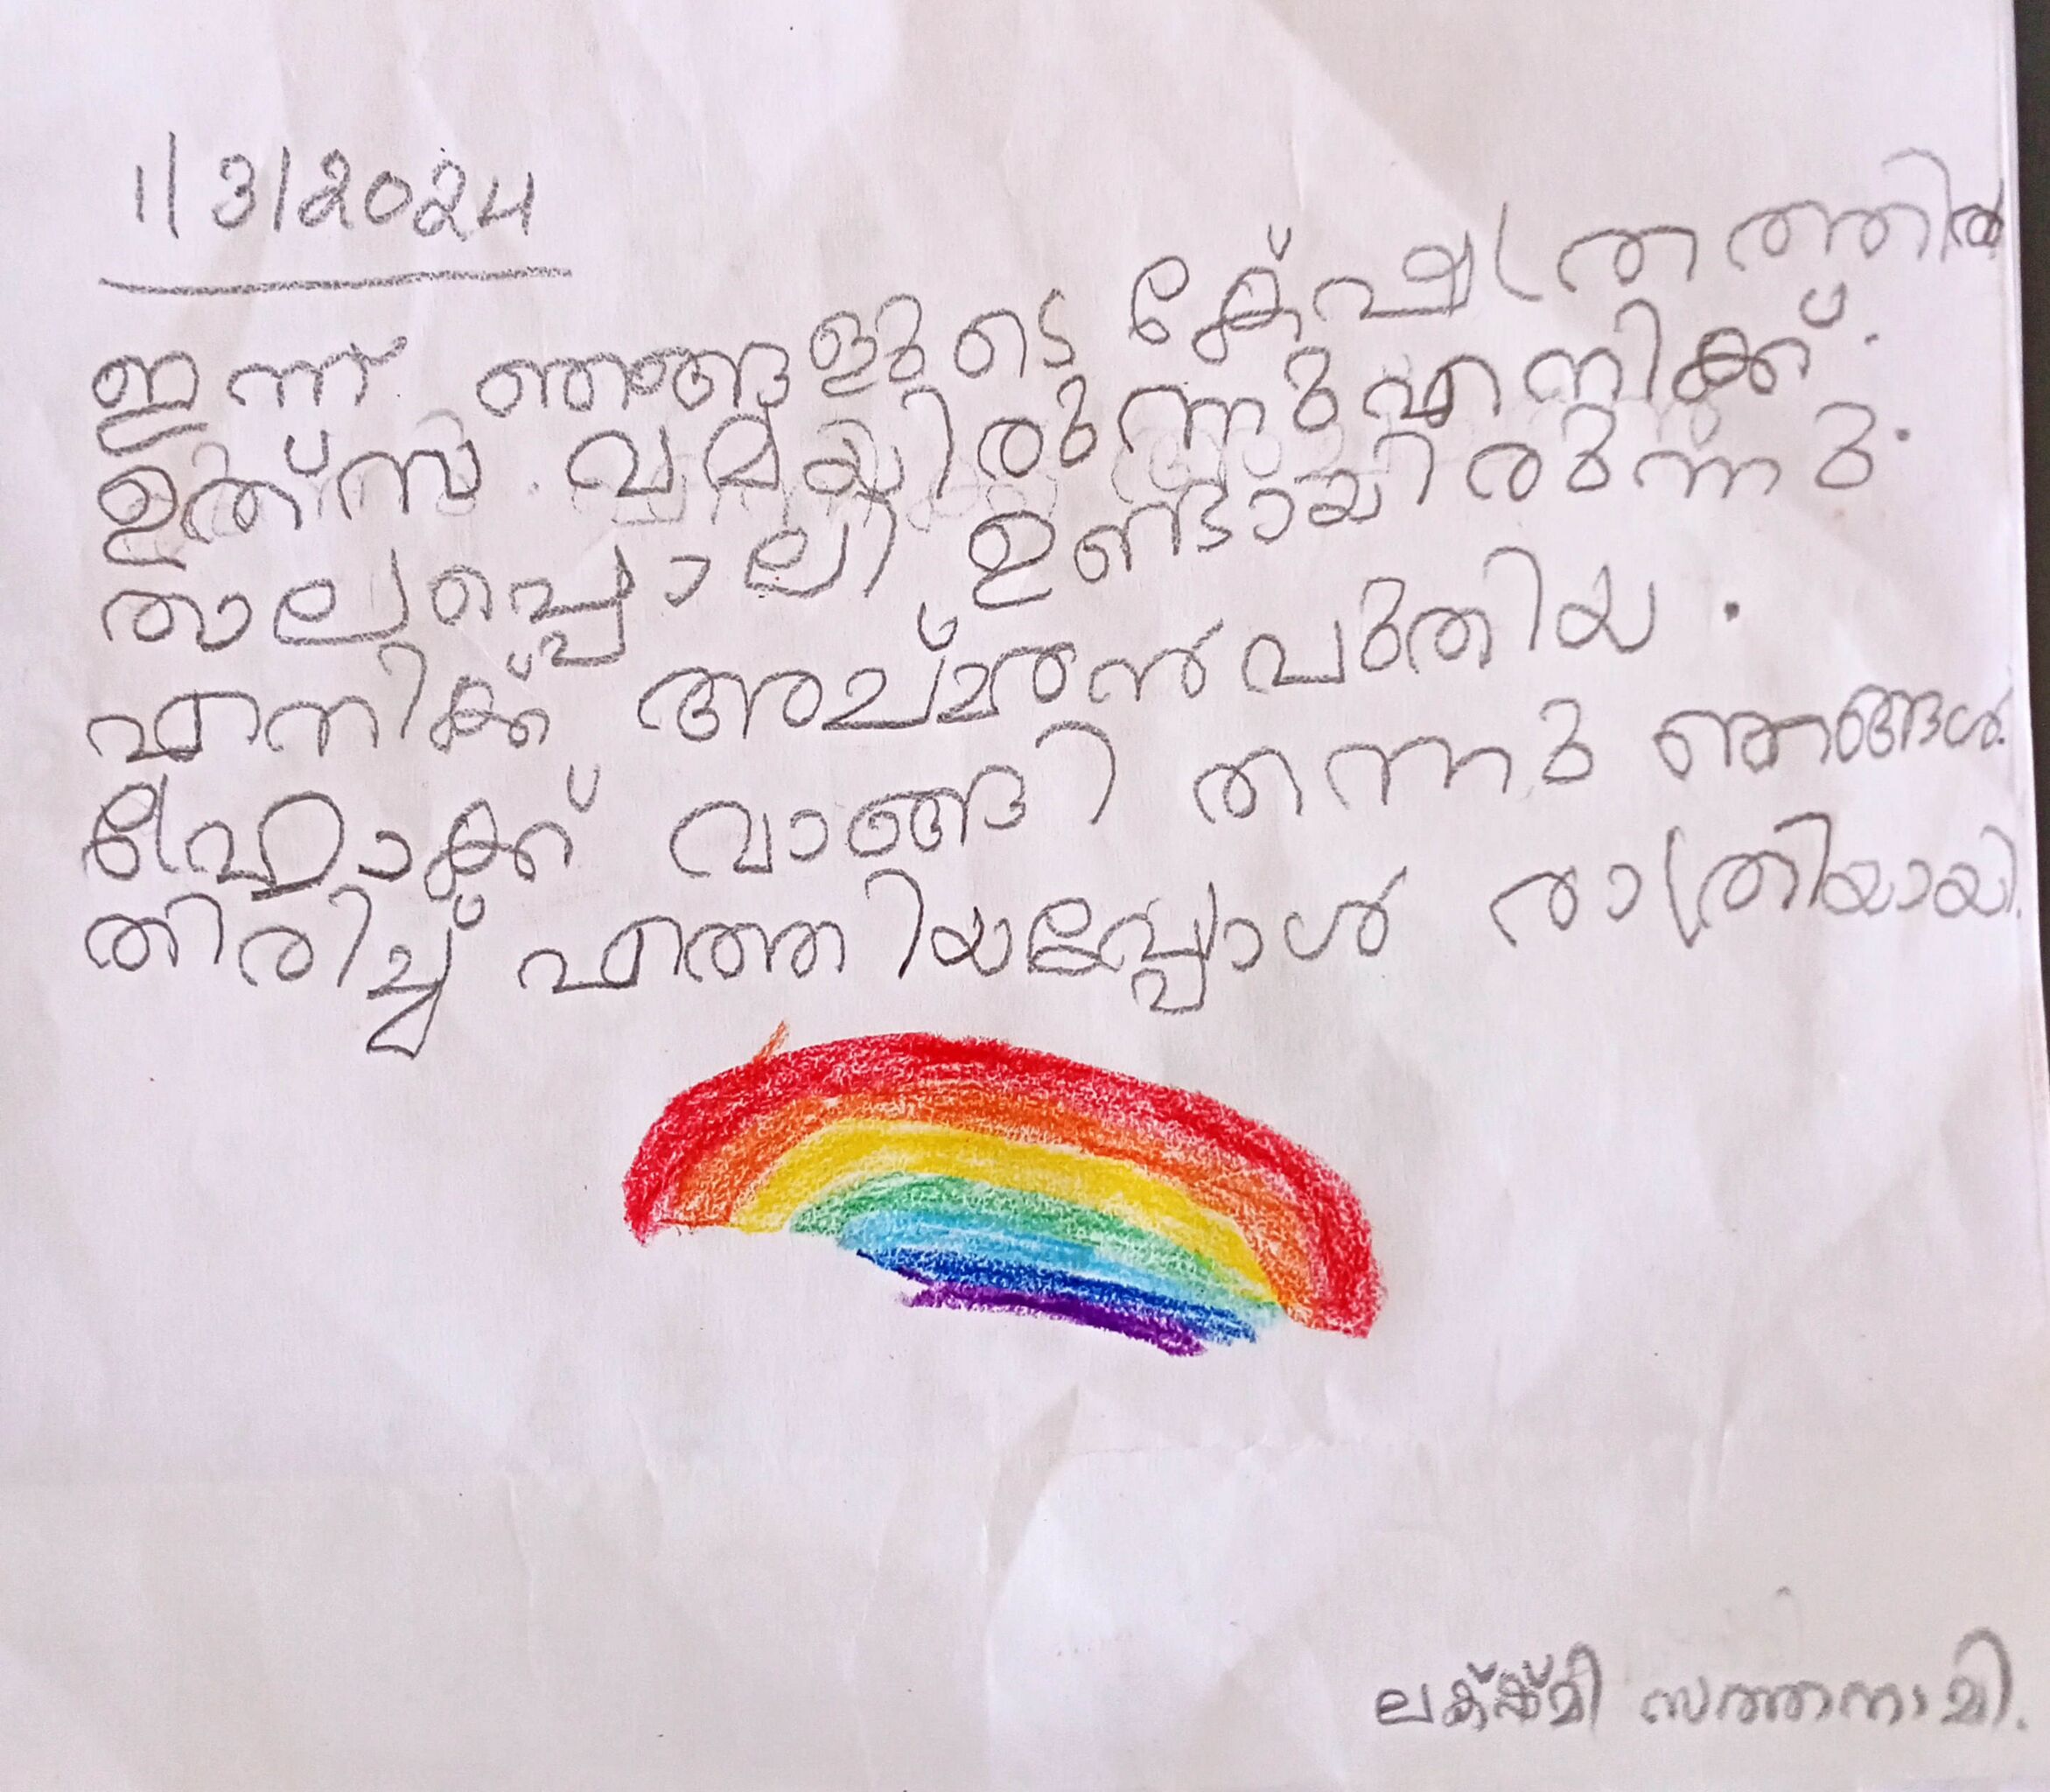 1/3/2024
ഇന്ന് ഞങ്ങളുടെ ക്ഷേത്രത്തിൽ
ഉത്സവമയിരുന്നു എനിക്ക്.
താലപ്പൊലി ഉണ്ടായിരുന്നു.
എനിക്ക് അച്ഛൻ പുതിയ.
ഫ്രോക്ക് വാങ്ങി തന്നു ഞങ്ങൾ.
തിരിച്ച് എത്തിയപ്പോൾ രാത്രിയായി.
ലക്ഷ്മി